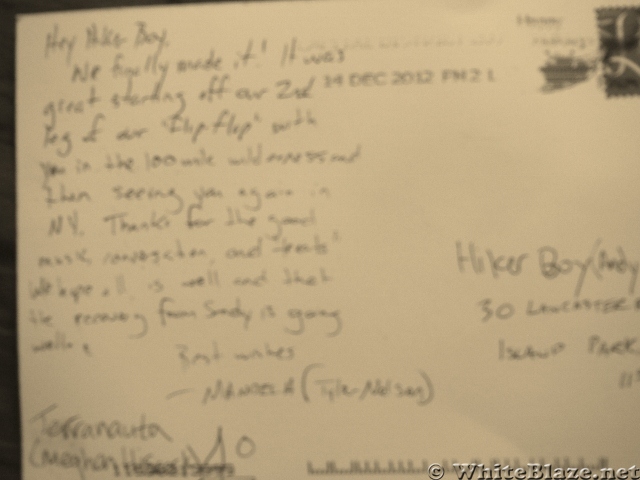 Hey Hiker Boy,
We finally made it! It was
great starting off our 2nd
leg of our "flip flop" with
you in the 100 mile wilderness and
then seeing you again in
NY. Thanks for the good
music, conversation, and "treats"
We hope all is well and that
the recovery from Sandy is going
well.
Best wishes
— MANDELA (Tyler Nelson)
Terranauta
(Meghan
14 DEC 2012 PM 2 1
Hiker Boy (Andy
30 LANCASTER
ISLAND PARK
11
© WhiteBlaze.net